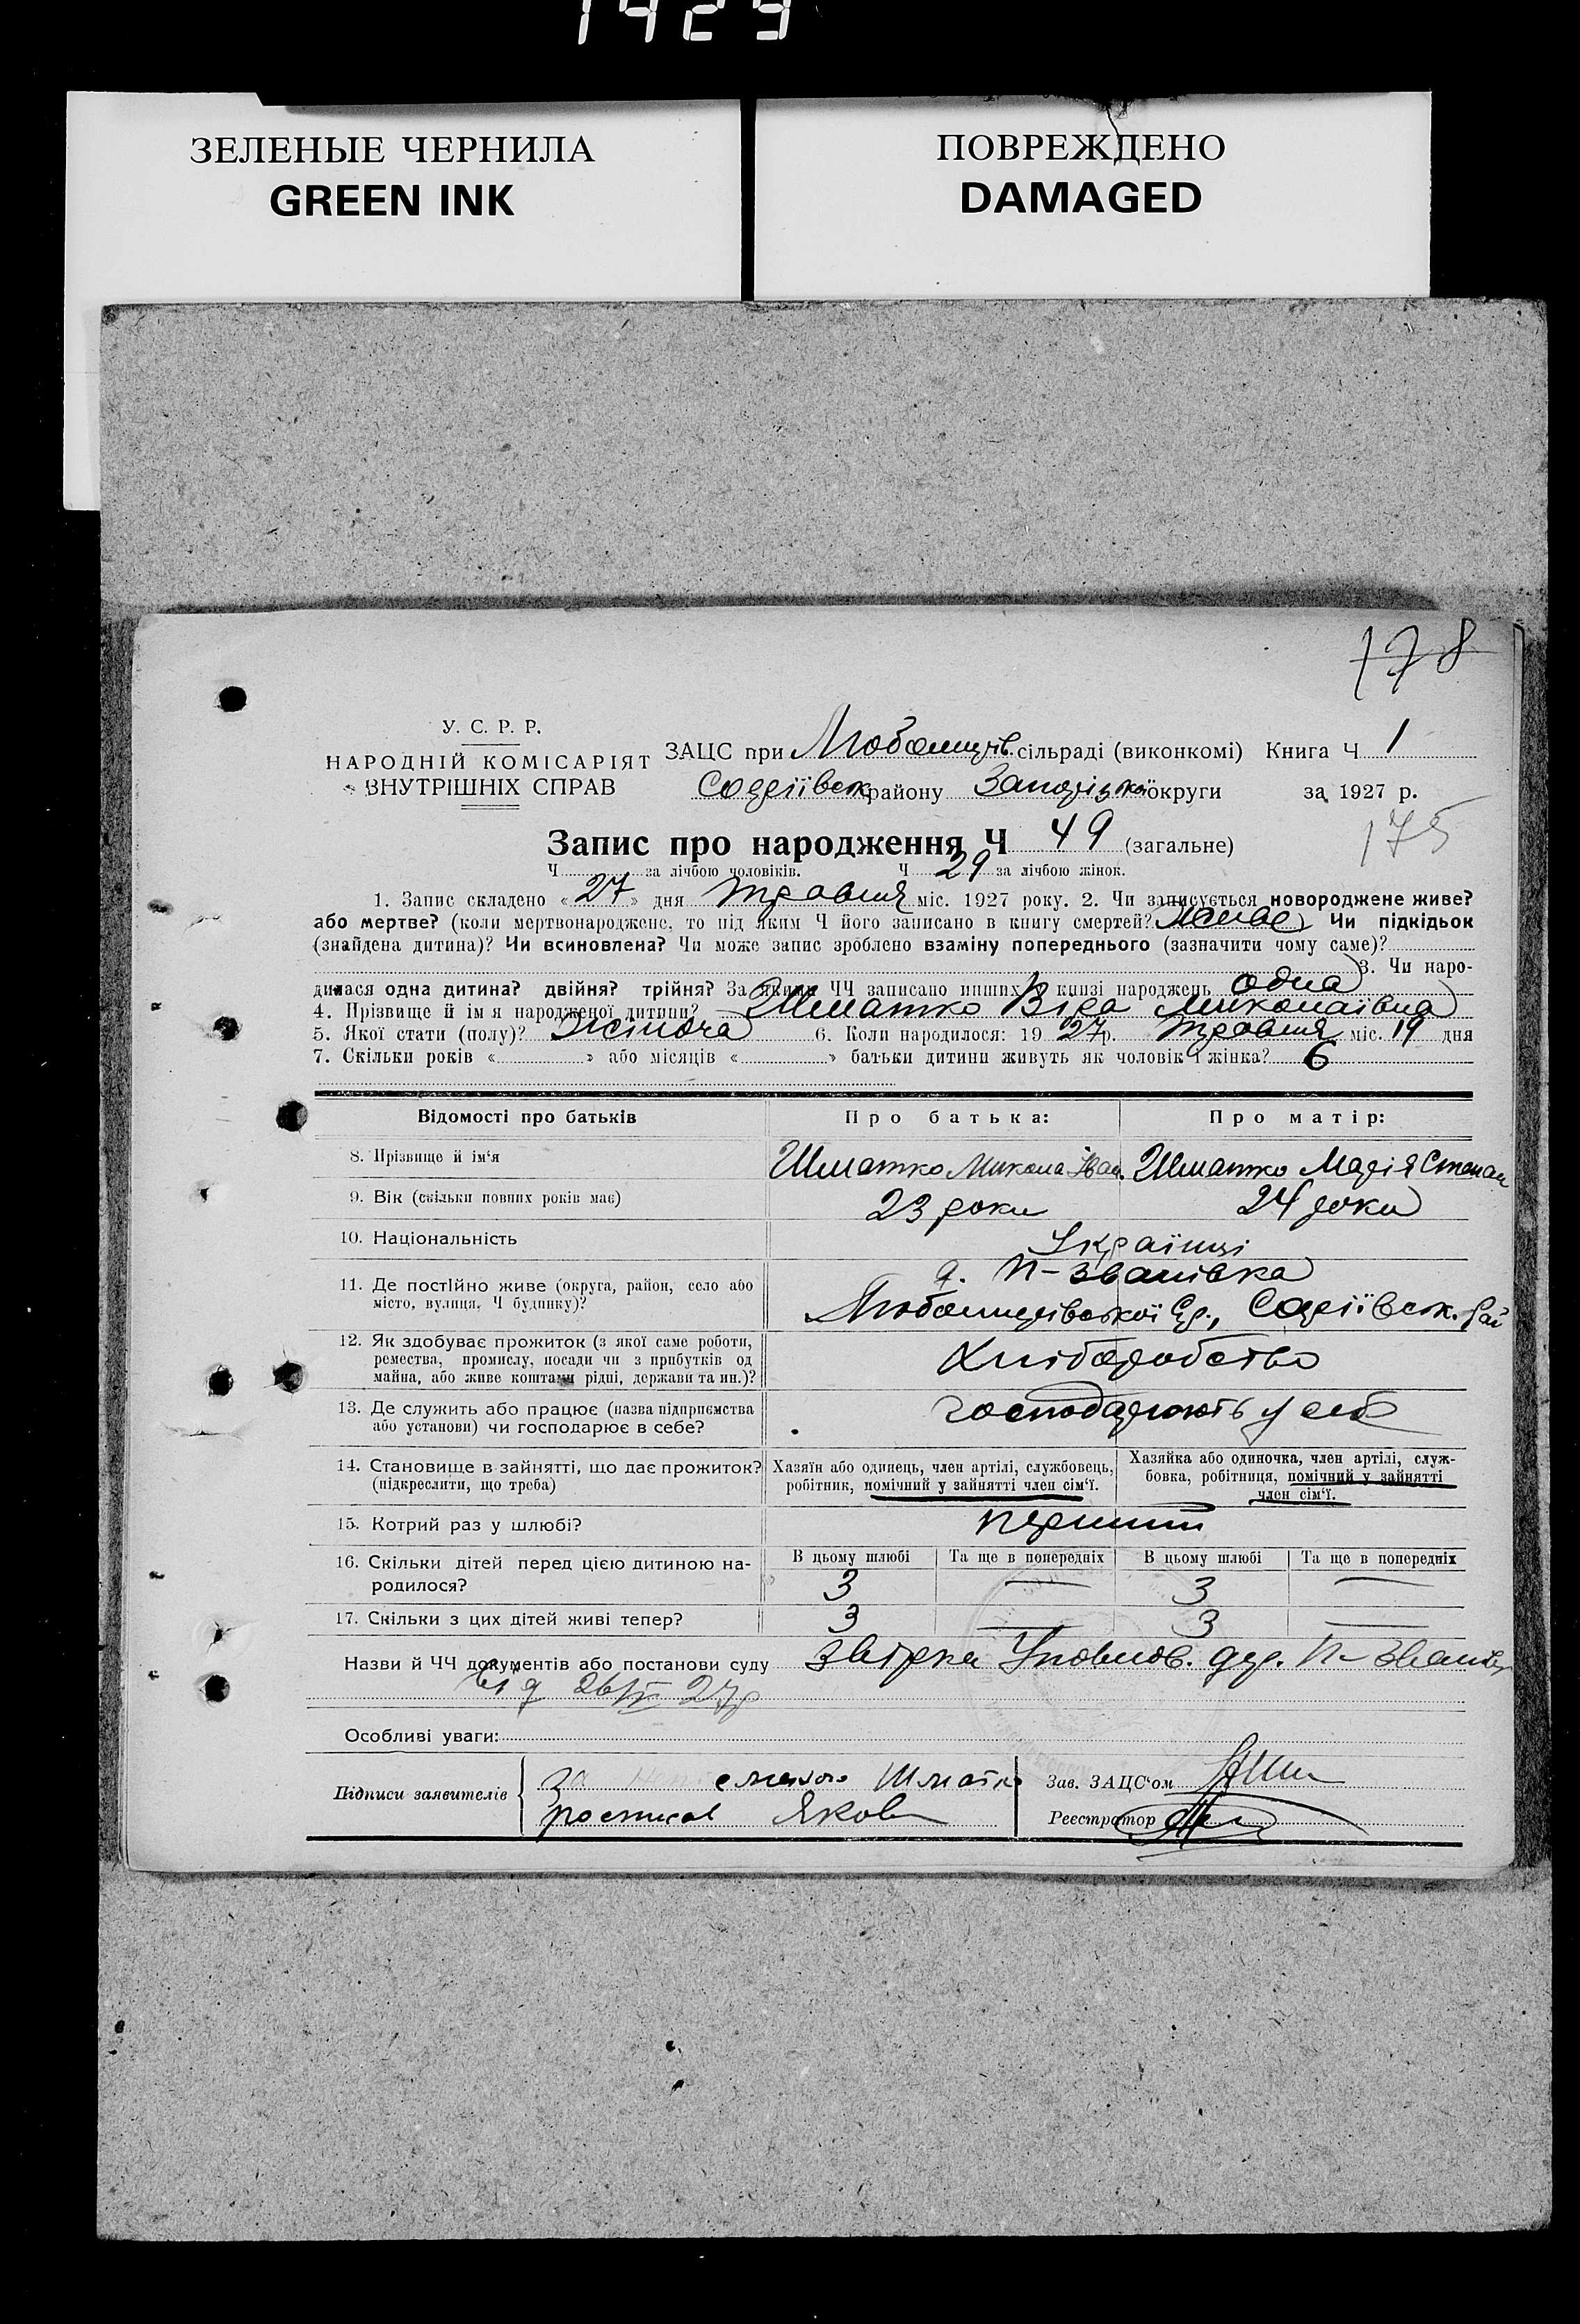 1429
ЗЕЛЕНЫЕ ЧЕРНИЛА
GREEN INK
ПОВРЕЖДЕНО
DAMAGED
178
У. С. Р. Р.
НАРОДНІЙ КОМІСАРІЯТ
ВНУТРІШНІХ СПРАВ
ЗАЦС при Любомирів. сільраді (виконкомі) Книга Ч 1
Софіївськ району Запоріської округи за 1927 р.
175
Запис про народження Ч 49 (загальне)
Ч за лічбою чоловіків. Ч 29 за лічбою жінок.
1. Запис складено «27» дня травня міс. 1927 року. 2. Чи записується новороджене живе?
або мертве? (коли мертвонароджене, то під яким Ч його записано в книгу смертей? живе) Чи підкідьок
(знайдена дитина)? Чи всиновлена? Чи може запис зроблено взаміну попереднього (зазначити чому саме)?
3. Чи наро-
дилася одна дитина? двійня? трійня? За якими ЧЧ записано инших в книзі народжень одна
4. Прізвище й ім я народженої дитини? Шматко Віра Миколаївна
5. Якої стати (полу)? жіноча 6. Коли народилося: 19 27 р. травня міс. 19 дня
7. Скільки років « » або місяців « » батьки дитини живуть як чоловік і жінка? 6
Відомості про батьків Про батька: Про матір:
8. Прізвище й ім'я Шматко Микола Іван. Шматко Марія Степан
9. Вік (скільки повних років має) 23 роки 24 роки
10. Національність Українці
11. Де постійно живе (округа, район, село або
місто, вулиця, Ч будинку)?
П-Званівка
12. Як здобуває прожиток (з якої саме роботи,
ремества, промислу, посади чи з прибутків од
майна, або живе коштами рідні, держави та ин.)?
Хліборобство
13. Де служить або працює (назва підприємства
або установи) чи господарює в себе?
господарюють у себе
14. Становище в зайнятті, що дає прожиток?
(підкреслити, що треба)
Хазяїн або одинець, член артілі, службовець,
робітник, помічний у зайнятті член сім'ї.
Хазяйка або одиночка, член артілі, служ-
бовка, робітниця, помічний у зайнятті
член сім'ї.
15. Котрий раз у шлюбі? перший
16. Скільки дітей перед цією дитиною на-
родилося?
В цьому шлюбі Та ще в попередніх В цьому шлюбі Та ще в попередніх
3 — 3 —
17. Скільки з цих дітей живі тепер? 3 — 3 —
Назви й ЧЧ документів або постанови суду Звірка Уповнов.
Особливі уваги:
Підписи заявителів
за Шматко
росписав Яков
Зав. ЗАЦС'ом
Реєстратор